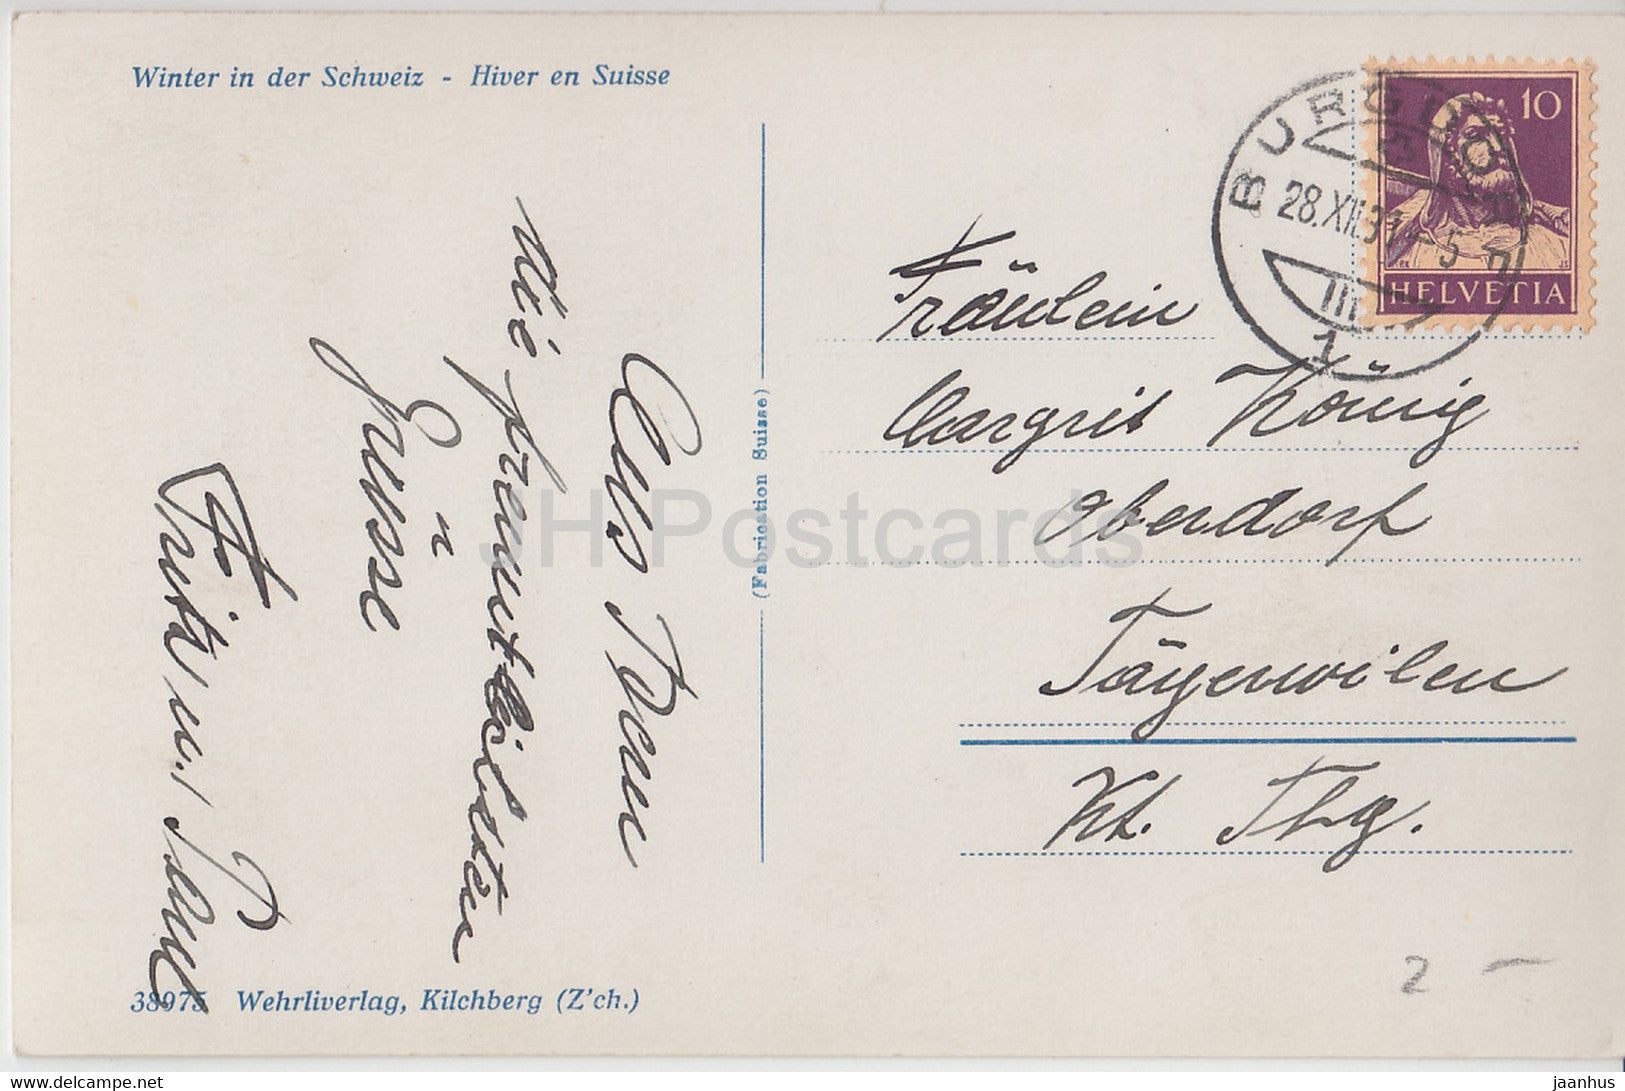 Winter in der Schweiz - Hiver en Suisse
Aus Bern
die freundlichsten
Grüsse
Fritz u. Paul
(Fabrication Suisse)
38975 Wehrliverlag, Kilchberg (Z'ch.)
BURGDORF
28.XII.31-5
III
1
10
HELVETIA
Fräulein
Margrit König
Oberdorf
Tägerwilen
Kt. Thg.
2 -
JH Postcards
www.delcampe.net
jaanhus